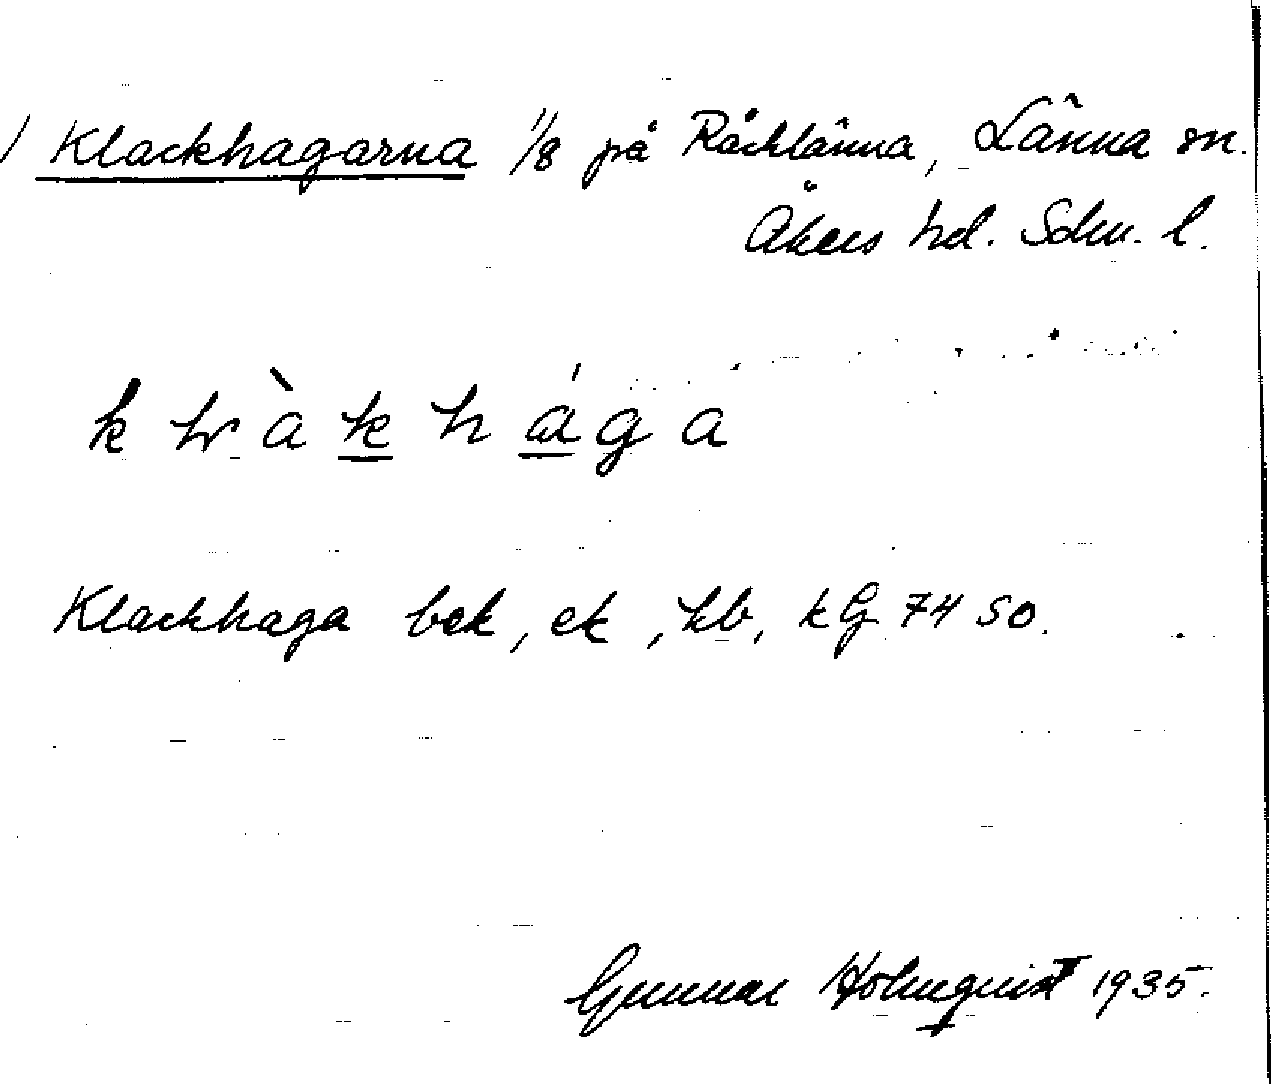 Klackhagarna 1/8 på Råcklänna, Länna sn.
Åkers hd. Sdm. l.
Klackhaga bek, ek, hb, kG 74 SO.
Gunnar Holmquist 1935.